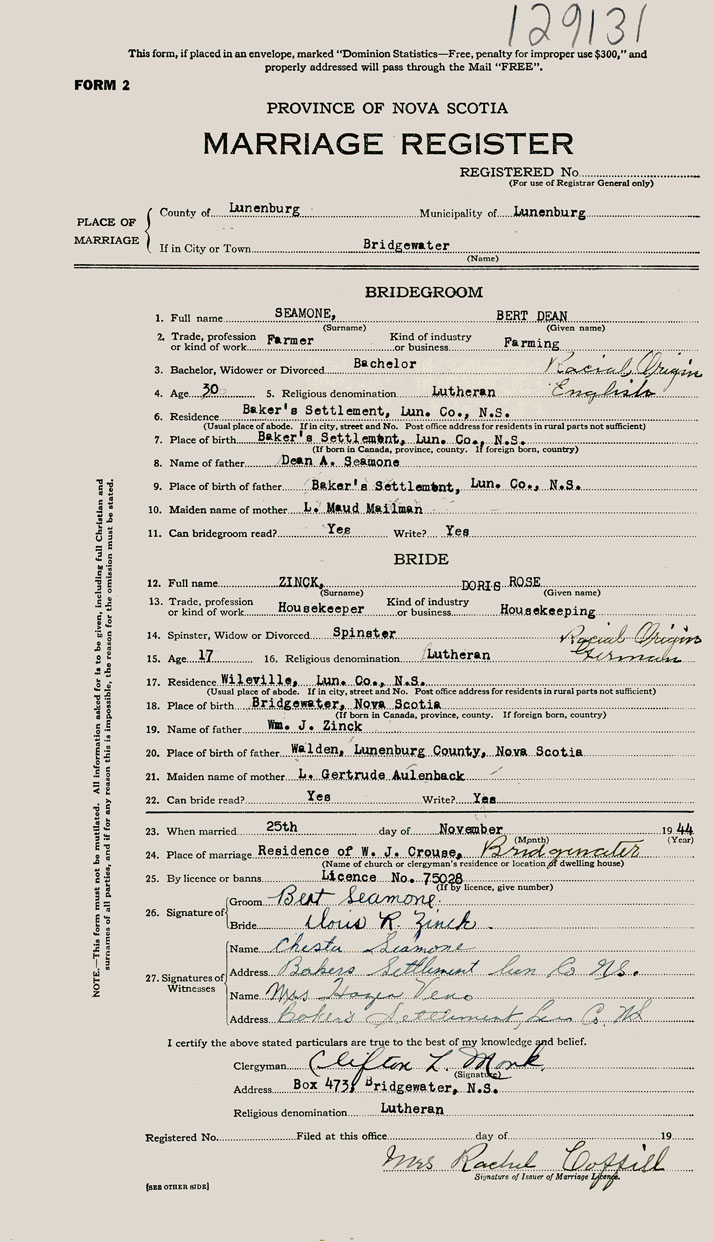 129131
This form, if placed in an envelope, marked "Dominion Statistics—Free, penalty for improper use $300," and
properly addressed will pass through the Mail "FREE".
FORM 2
PROVINCE OF NOVA SCOTIA
MARRIAGE REGISTER
REGISTERED No.
(For use of Registrar General only)
PLACE OF MARRIAGE
County of Lunenburg Municipality of Lunenburg
If in City or Town Bridgewater
(Name)
BRIDEGROOM
1. Full name SEAMONE, BERT DEAN
(Surname) (Given name)
2. Trade, profession or kind of work Farmer Kind of industry or business Farming
3. Bachelor, Widower or Divorced Bachelor Racial Origin
4. Age 30 5. Religious denomination Lutheran English
6. Residence Baker's Settlement, Lun. Co., N.S.
(Usual place of abode. If in city, street and No. Post office address for residents in rural parts not sufficient)
7. Place of birth Baker's Settlement, Lun. Co., N.S.
(If born in Canada, province, county. If foreign born, country)
8. Name of father Dean A. Seamone
9. Place of birth of father Baker's Settlement, Lun. Co., N.S.
10. Maiden name of mother L. Maud Mailman
11. Can bridegroom read? Yes Write? Yes
BRIDE
12. Full name ZINCK, DORIS ROSE
(Surname) (Given name)
13. Trade, profession or kind of work Housekeeper Kind of industry or business Housekeeping
14. Spinster, Widow or Divorced Spinster Racial Origin
15. Age 17 16. Religious denomination Lutheran German
17. Residence Wileville, Lun. Co., N.S.
(Usual place of abode. If in city, street and No. Post office address for residents in rural parts not sufficient)
18. Place of birth Bridgewater, Nova Scotia
(If born in Canada, province, county. If foreign born, country)
19. Name of father Wm. J. Zinck
20. Place of birth of father Walden, Lunenburg County, Nova Scotia
21. Maiden name of mother L. Gertrude Aulenback
22. Can bride read? Yes Write? Yes
23. When married 25th day of November 19 44
(Month) (Year)
24. Place of marriage Residence of W. J. Crouse, Bridgewater
(Name of church or clergyman's residence or location of dwelling house)
25. By licence or banns Licence No. 75028
(If by licence, give number)
26. Signature of
Groom Bert Seamone.
Bride Doris R. Zinck.
27. Signatures of Witnesses
Name Chester Seamone
Address Bakers Settlement Lun Co NS.
Name Mrs Hazen Veno
Address Bakers Settlement, Lun Co. NS
I certify the above stated particulars are true to the best of my knowledge and belief.
Clergyman Clifton L. Monk
(Signature)
Address Box 473, Bridgewater, N.S.
Religious denomination Lutheran
Registered No. Filed at this office day of 19
Mrs Rachel Coffill
Signature of Issuer of Marriage Licence.
[SEE OTHER SIDE]
NOTE.—This form must not be mutilated. All information asked for is to be given, including full Christian and
surnames of all parties, and if for any reason this is impossible, the reason for the omission must be stated.